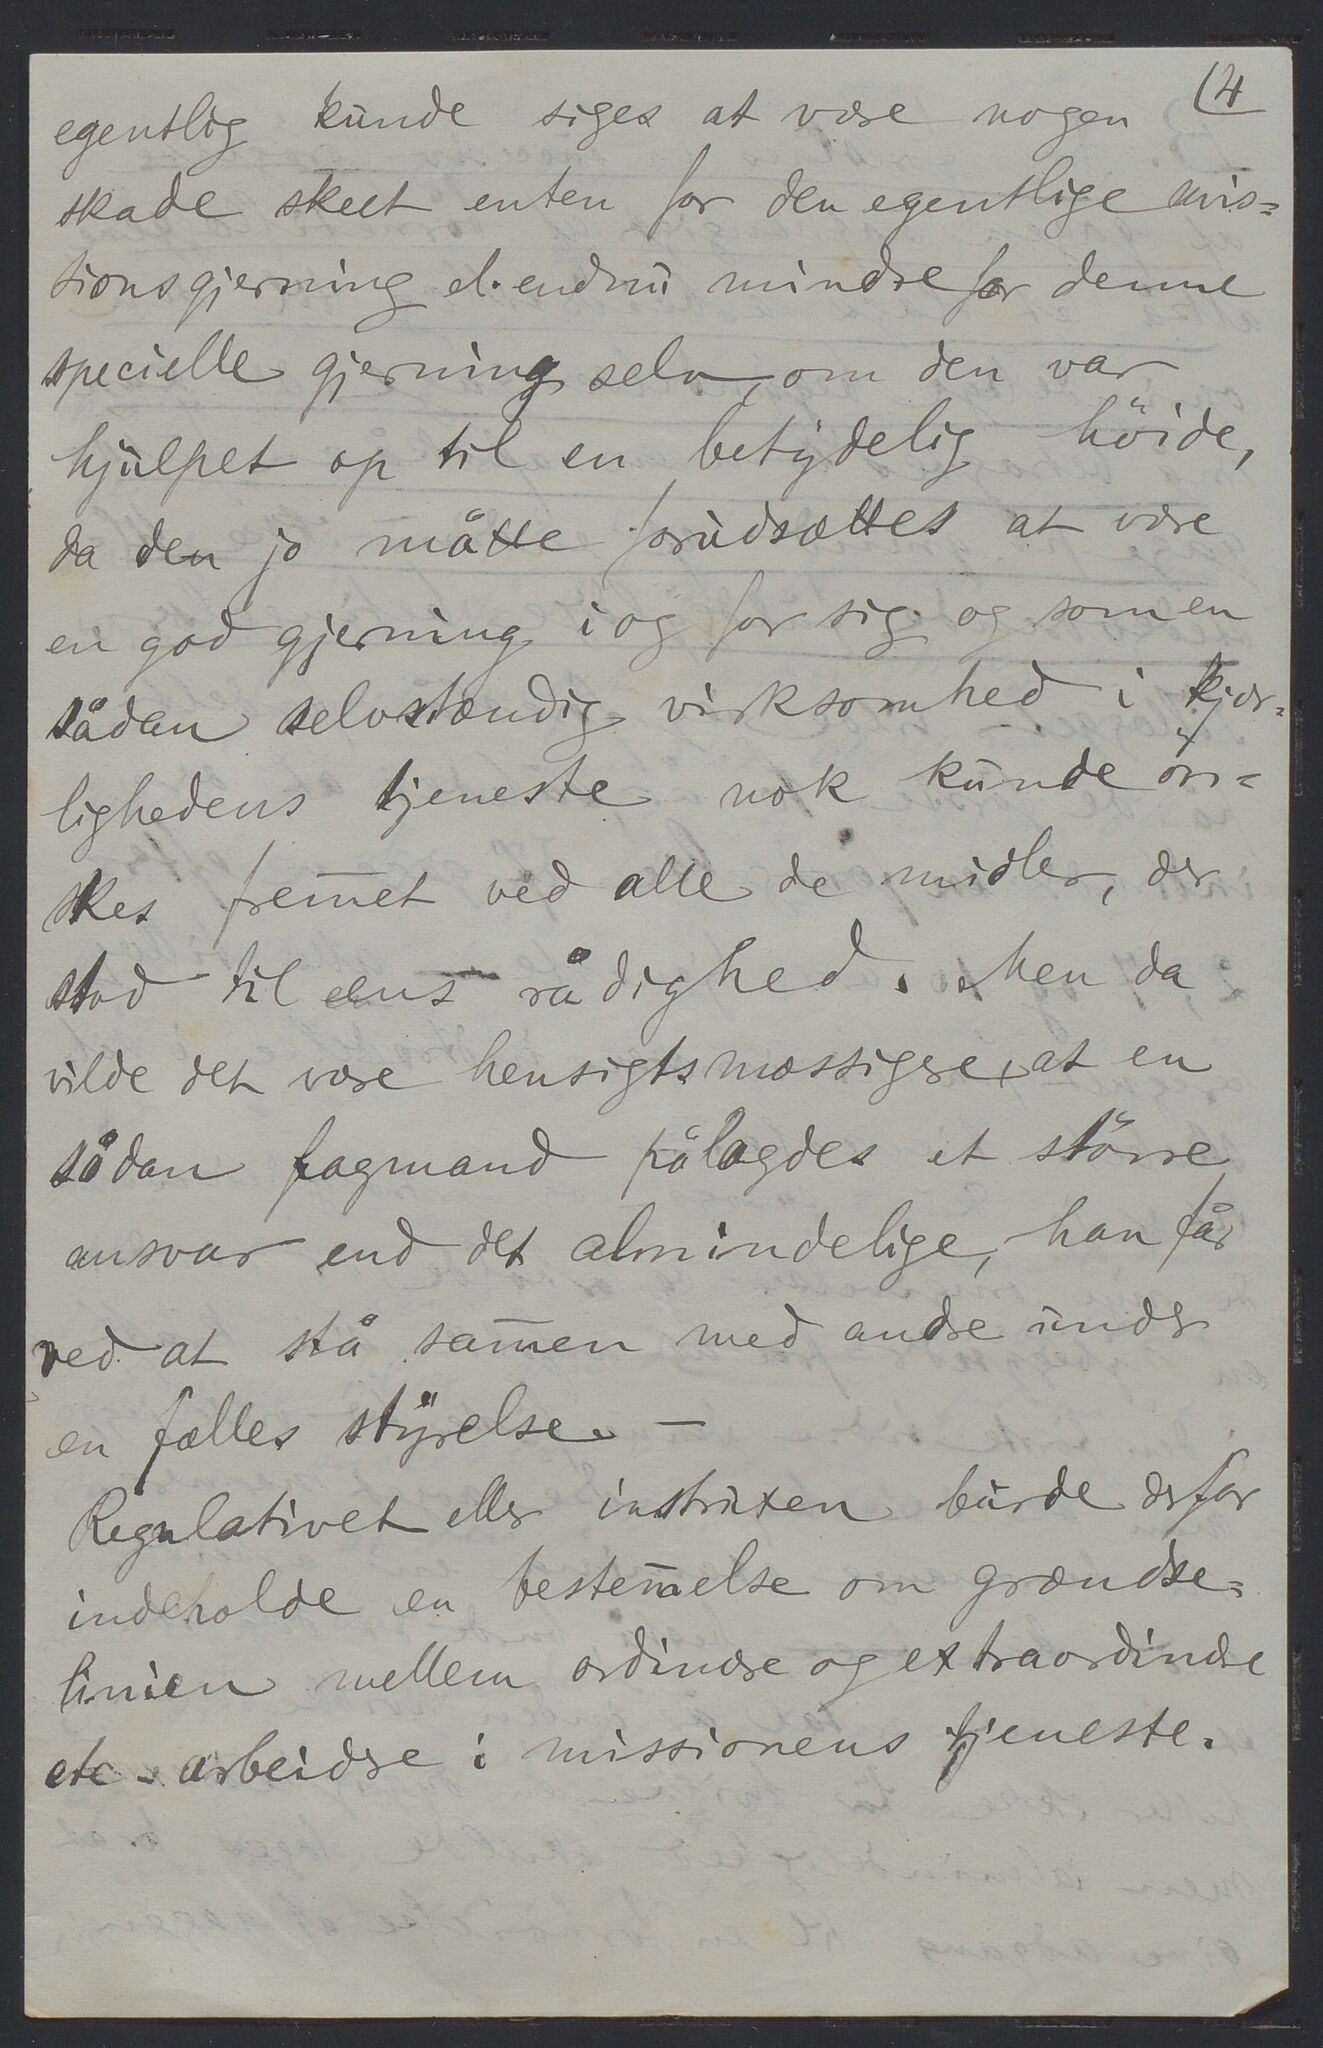 (4
egentlig kunde siges at være nogen
skade skeet enten for den egentlige mis=
sionsgjerning el. endnu mindre for denne
specielle gjerning selv, om den var
hjulpet op til en betydelig höide,
da den jo måtte forudsættes at være
en god gjerning i og for sig og som en
sådan selvstændig virksomhed i kjær=
lighedens tjeneste nok kunde ön=
skes fremet ved alle de midler, der
stod til dens rådighed. Men da
vilde det være hensigtsmæssigere, at en
sådan fagmand pålagdes et större
ansvar end det almindelige, han får
ved at stå samen med andre under
en fælles styrelse. —
Regulativet eller instruxen burde derfor
indeholde en bestemelse om grændse=
linien mellem ordinære og extraordinære
etc. arbeidere i missionens tjeneste.